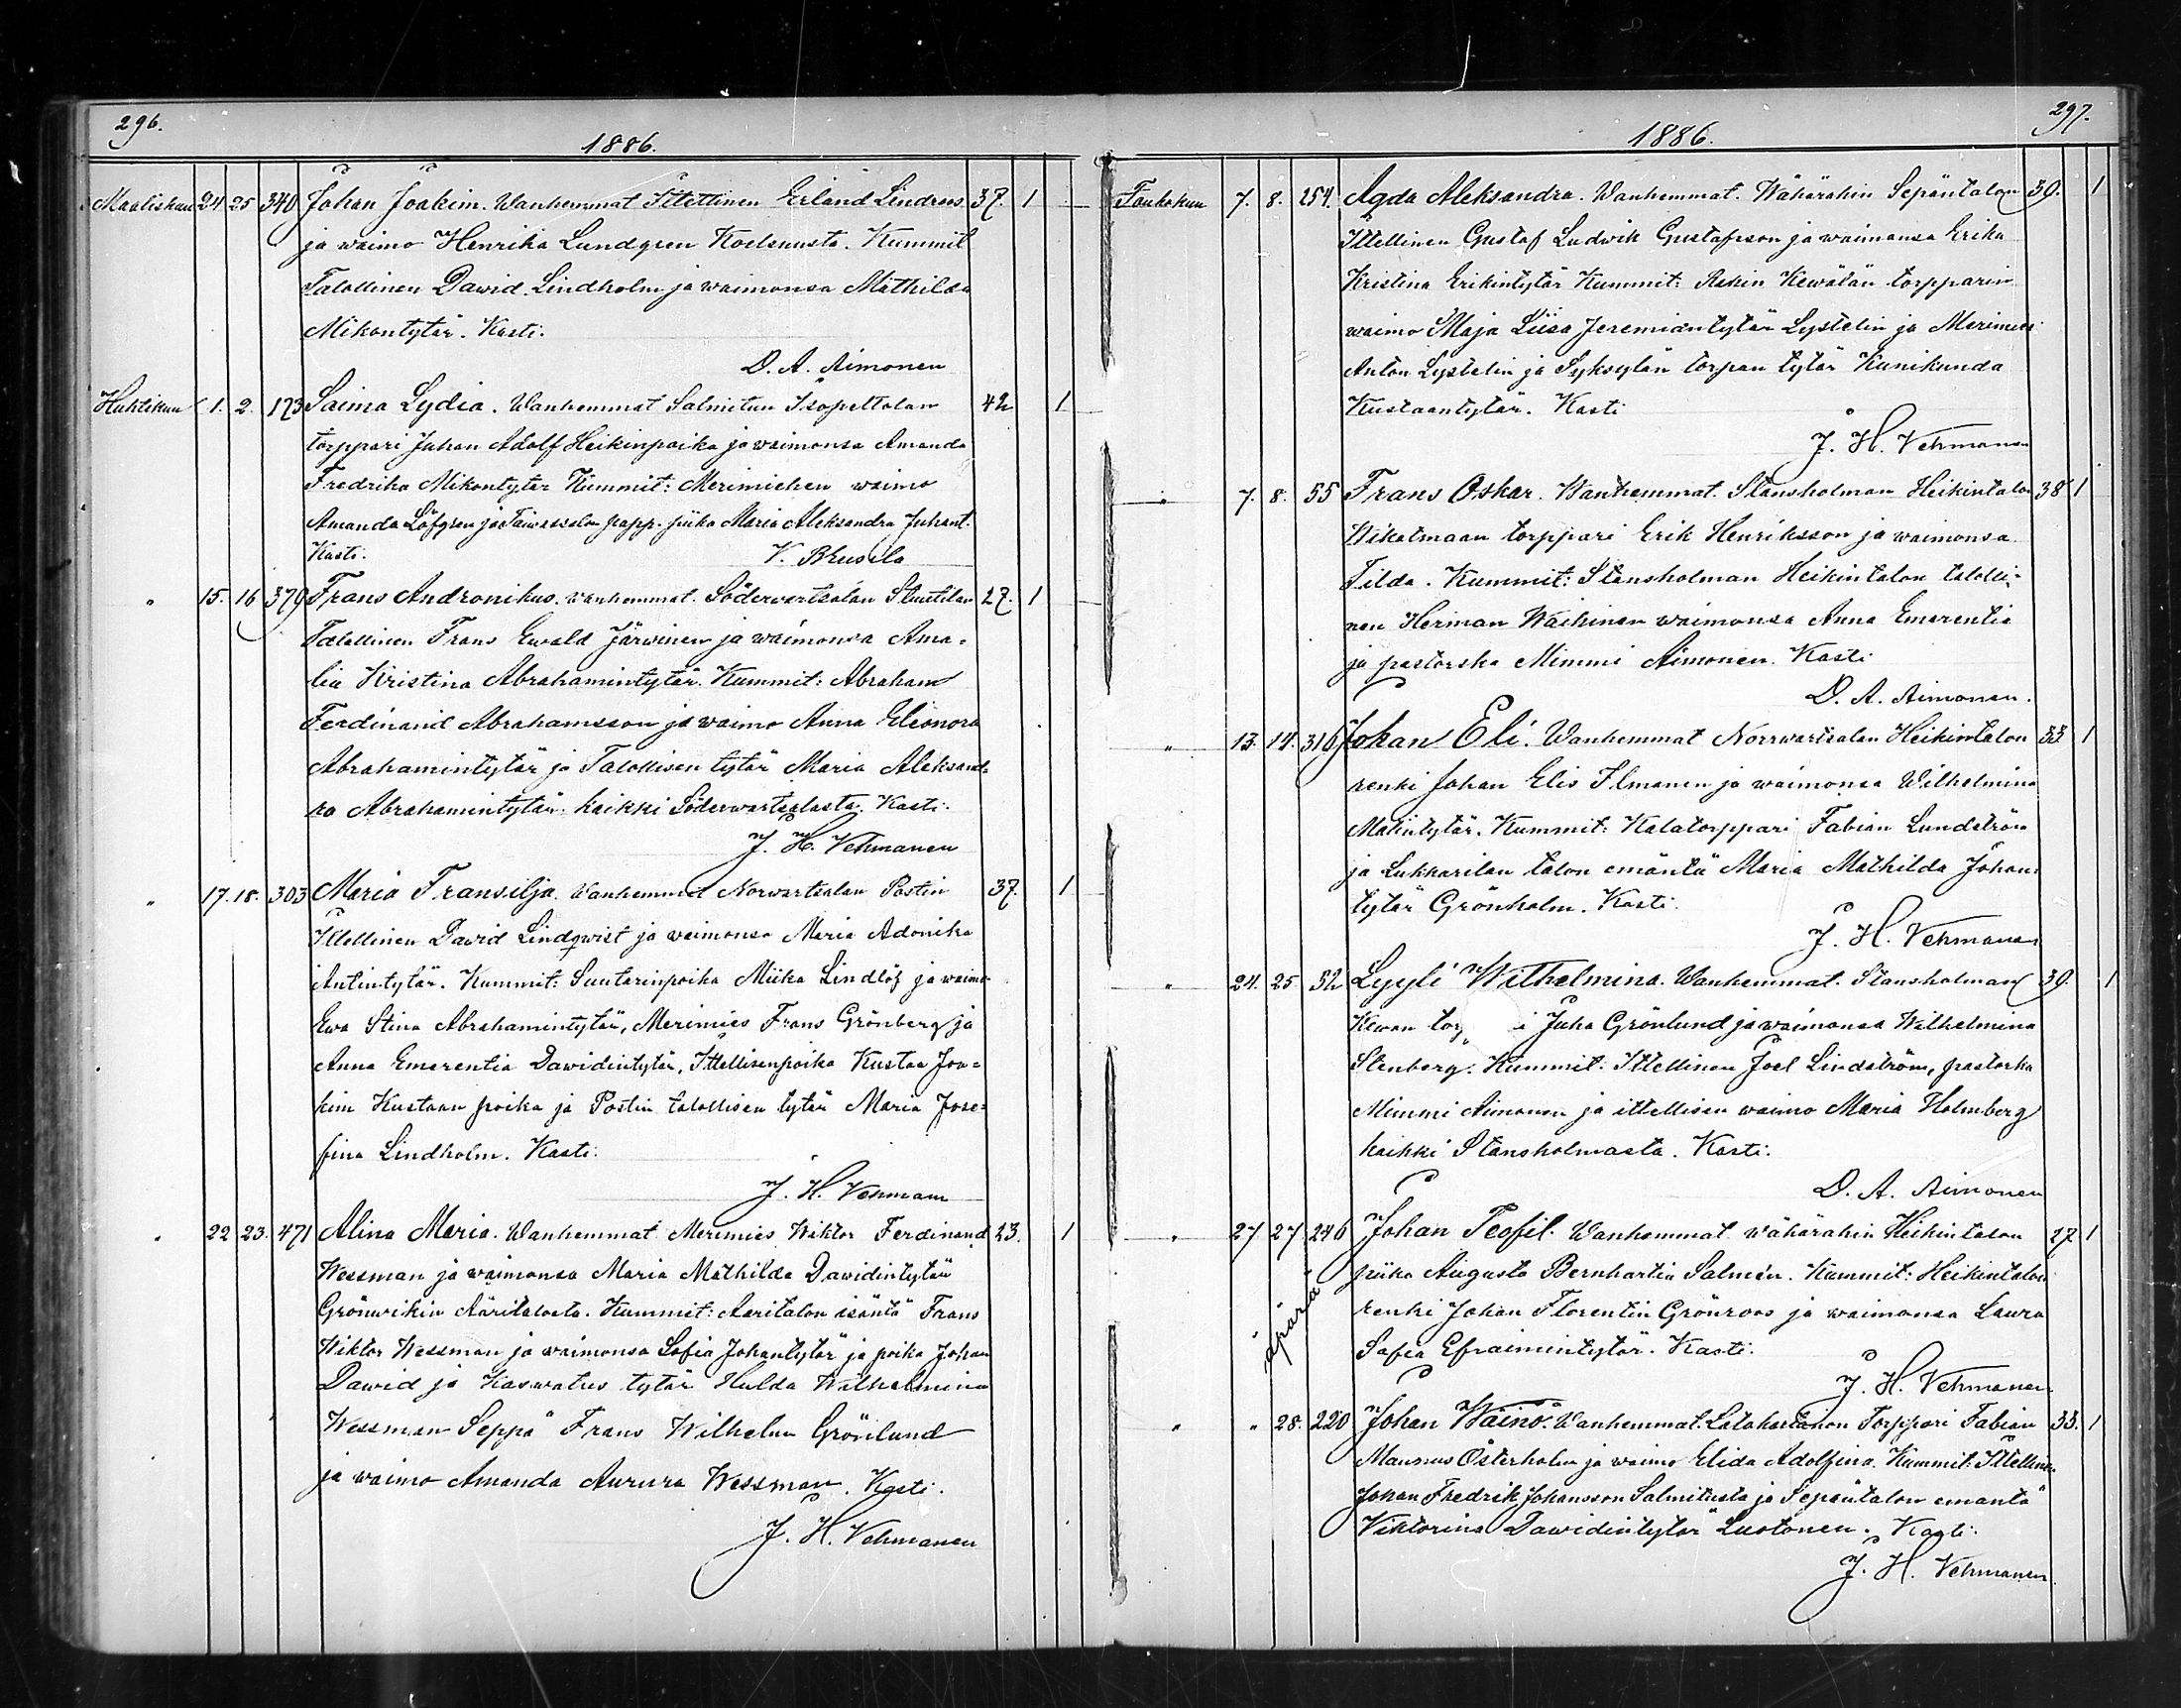 296.
1886.
Maaliskuu 24 25 340 Johan Joakim. Wanhemmat Ittellinen Erland Lindroos 37. 1
ja waimo Henrika Lundgren Koelsuusta. Kummit
Talollinen Dawid Lindholm ja waimonsa Mathilda
Mikontytär. Kasti:
D. A. Aimonen
Huhtikuu 1. 2. 173 Saima Lydia. Wanhemmat Salmitun Isopeltolan 42 1
torppari Juhan Adolf Heikinpoika ja waimonsa Amanda
Fredrika Mikontytär Kummit: Merimiehen waimo
Amanda Löfgren ja Taiwassalon papp. piika Maria Aleksandra Juhant.
Kasti. K. Brusila
" 15. 16 379 Frans Andronikus. wanhemmat. Söderwartsalan 27. 1
Talollinen Frans Ewald Järwinen ja waimonsa Ama-
lia Kristina Abrahamintytär. Kummit: Abraham
Ferdinand Abrahamsson ja waimo Anna Eleonora
Abrahamintytär ja Talollisen tytär Maria Aleksand-
ra Abrahamintytär. kaikki Söderwartsalasta. Kasti:
J. H. Vehmanen
" 17. 18. 303 Maria Fransilja. Wanhemmat Norwartsalan Postin 37. 1
Ittellinen Dawid Lindqwist ja waimonsa Maria Adonika
Antintytär. Kummit: Suutarinpoika Miika Lindlöf ja waimo
Ewa Stina Abrahamintytär, Merimies Frans Grönberg ja
Anna Emerentia Dawidintytär, Ittellisenpoika Kustaa Joa-
kim Kustaan poika ja Postin talollisen tytär Maria Jose-
fina Lindholm. Kasti:
J. H. Vehmanen
" 22 23. 471 Alina Maria. Wanhemmat Merimies Wiktor Ferdinand 23. 1
Wessman ja waimonsa Maria Mathilda Dawidintytär
Grönwikin Ääritalosta. Kummit: Aäritalon isäntä Frans
Wiktor Wessman ja waimonsa Sofia Johantytär ja poika Johan
Dawid ja Kaswatus tytär Hulda Wilhelmina
Wessman Seppä Frans Wilhelm Grönlund
ja waimo Amanda Aurura Wessman. Kasti.
J. H. Vehmanen
297.
1886.
Toukokuu 7. 8. 254. Agda Aleksandra. Wanhemmat. Wähärahin Sepäntalon 30. 1
Ittellinen Gustaf Ludwik Gustafsson ja waimonsa Erika
Kristina Erikintytär Kummit: Rahin Kewätän torpparin
waimo Maja Liisa Jeremiantytär Lystelin ja Merimies
Anton Lystelin ja Syksylän torpan tytär Kunikunda
Kustaantytär. Kasti
J. H. Vehmanen
" 7. 8. 55 Frans Oskar. Wanhemmat. Stansholman Heikintalon 38 1
Wikatmaan torppari Erik Henriksson ja waimonsa
Tilda. Kummit: Stansholman Heikintalon talolli-
nen Herman Waihinen waimonsa Anna Emerentia
ja pastorska Mimmi Aimonen. Kasti
D. A. Aimonen.
" 13. 14. 316 Johan Eli. Wanhemmat Norrwartsalan Heikintalon 33 1
renki Johan Elis Ilmanen ja waimonsa Wilhelmina
Matintytär. Kummit: Kalatorppari Fabian Lundström
ja Lukkarilan talon emäntä Maria Mathilda Johan-
tytär Grönholm. Kasti.
J. H. Vehmanen
" 24. 25 52 Lyyli Wilhelmina. Wanhemmat. Stansholman 39. 1
Kewan Juha Grönlund ja waimonsa Wilhelmina
Stenberg. Kummit: Ittellinen Joel Lindström, pastorska
Mimmi Aimonen ja ittellisen waimo Maria Holmberg
kaikki Stansholmasta. Kasti.
D. A. Aimonen
" 27 27 246 Johan Teofil. Wanhemmat wähärahin Heikintalon 27 1
äpärä piika Augusta Bernhartia Salmén. Kummit: Heikintalon
renki Johan Florentin Grönroos ja waimonsa Laura
Sofia Efraimintytär. Kasti:
J. H. Vehmanen
" " 28. 220 Johan Wäinö. Wanhemmat. Latokartanon Torppari Fabian 33. 1
Maunus Österholm ja waimo Elida Adolfina. Kummit: Ittellinen
Johan Fredrik Johansson Salmitusta ja Sepäntalon emäntä
Viktorina Dawidintytär Luotonen. Kasti.
J. H. Vehmanen